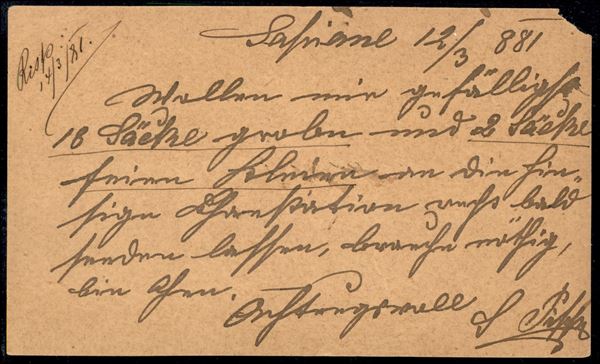 Resp.
14/3/81.
12/3 881
Wollen mir gefälligst
18 Säcke groben und 2 Säcke
feinen Kleien an die hie-
sige Bahnstation recht bald
senden lassen, brauche nöthig,
bin Ihnen.
Achtungsvoll